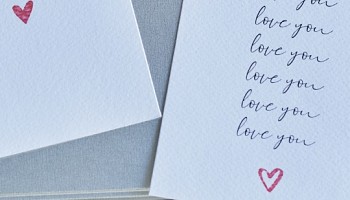 love you
love you
love you
love you
love you
love you